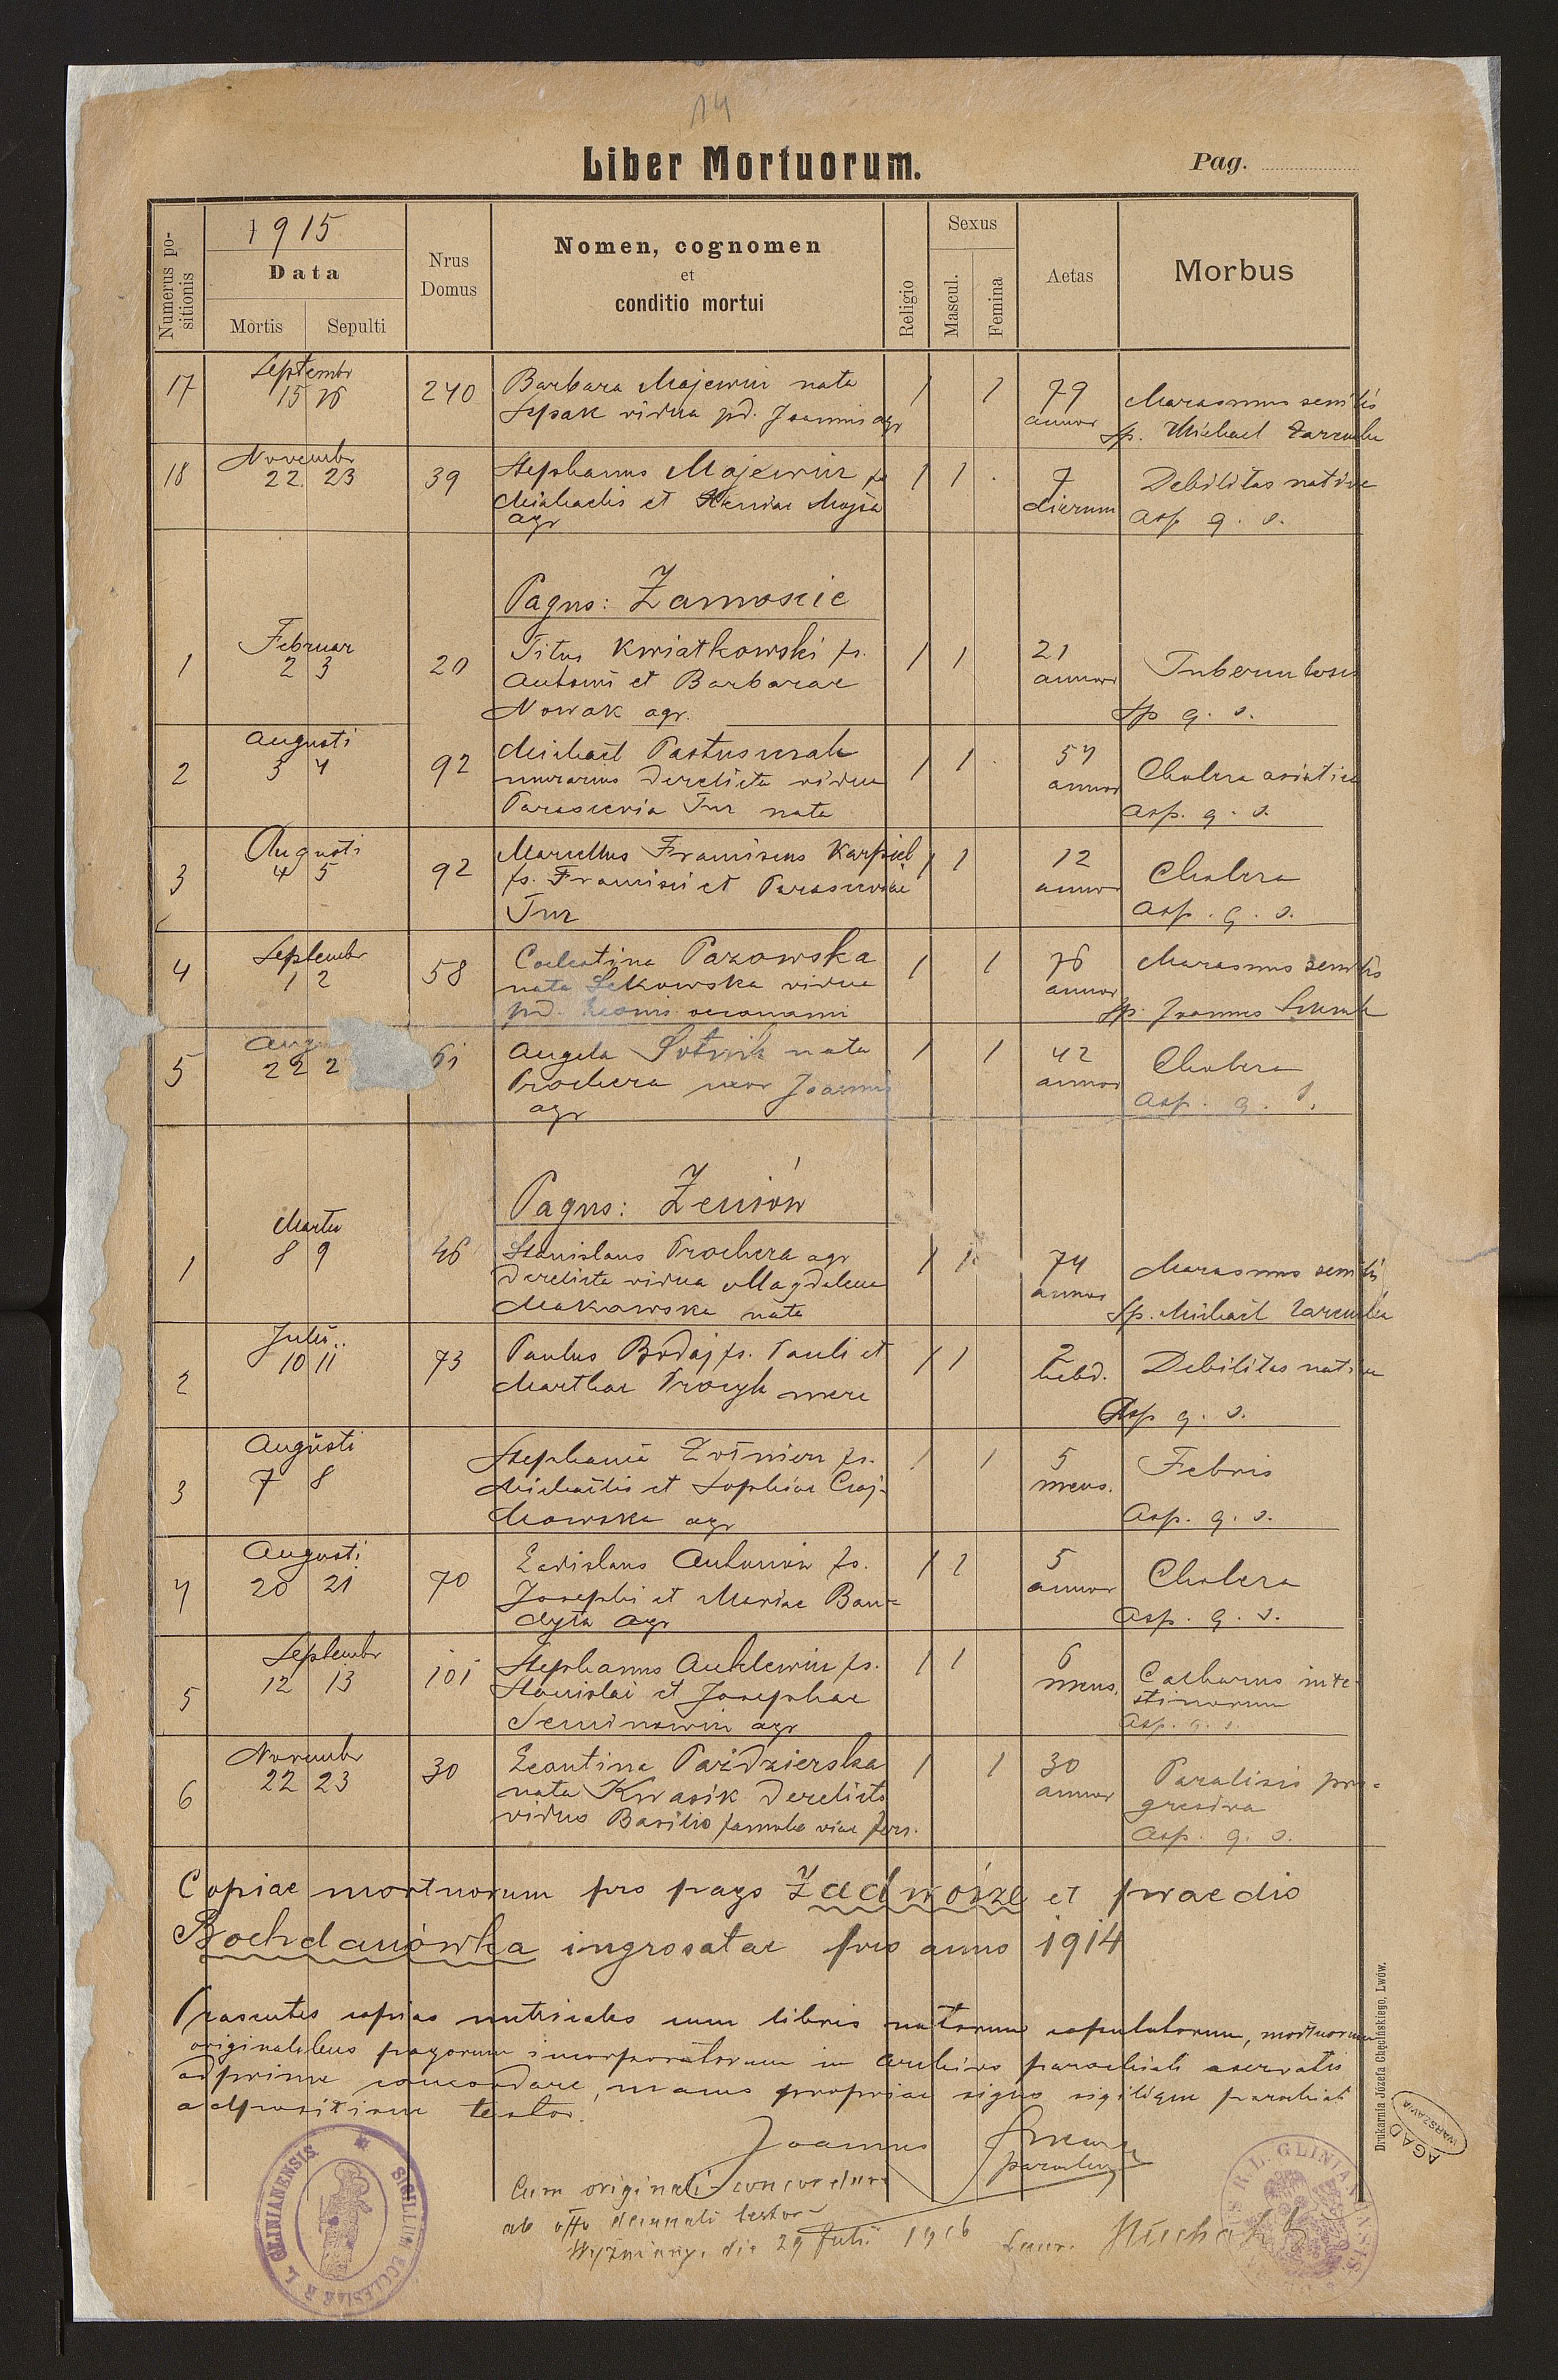 14
Liber Mortuorum.
Pag.
Numerus po-
sitionis
1915
Data
Mortis
Sepulti
Nrus
Domus
Nomen, cognomen
et
conditio mortui
Religio
Sexus
Mascul.
Femina
Aetas
Morbus
Septembr
17 15 16 240 Barbara Majewicz nata 1 1 79 Marasmus senilis
vidua pd. Joannis agr annor Sp. Michael Zaremba
Novembr
18 22 23 39 Stephanus Majewicz fs 1 1 7 Debilitas nativa
Michaelis et Xeniae dierum Asp q. s.
agr
Pagus: Zamoście
Februar
1 2 3 20 Titus Kwiatkowski fs. 1 1 21 Tuberculosis
Antonii et Barbarae annor
Nowak agr. Sp q. s.
Augusti
2 3 4 92 Michael Pastuszak 1 1 54 Cholera asiatica
murarius derelicta vidua annor
Parascevia Tur nata Asp. q. s.
Augusti
3 4 5 92 Marcellus Franciscus Karpiel 1 1 12 Cholera
fs. Francisci et Parasceviae annor
Tur Asp. q. s.
Septembr
4 1 2 58 Coelestina Pazowska 1 1 76 Marasmus senilis
nata vidua annor
pd. Leonis oeconomi Sp. Joannes
5 22 2 61 Angela nata 1 1 42 Cholera
Prochera uxor Joannis annor
agr Asp. q. s.
Pagus: Żeniów
Martii
1 8 9 46 Stanislaus Prochera agr 1 1 74 Marasmus senilis
derelicta vidua Magdalena annor
Makowska nata Sp. Michael Zaremba
Julii
2 10 11 73 Paulus Bodaj fs. Pauli et 1 1 2 Debilitas nativa
Marthae Procyk merc hebd.
Asp q. s.
Augusti
3 7 8 Stephania fs. 1 1 5 Febris
Michaelis et Sophiae Czaj- mens.
kowska agr Asp. q. s.
Augusti
4 20 21 70 Ladislaus Antoniów fs. 1 1 5 Cholera
Josephi et Mariae Ban- annor
dyra agr Asp. q. s.
Septembr
5 12 13 101 Stephanus fs. 1 1 6 Catharus inte-
Stanislai et Josephae mens. stinorum
agr Asp. q. s.
Novembr
6 22 23 30 Leontina Paździerska 1 1 30 Paralisis pro-
nata Kwasik derelicto annor gresiva
viduo Basilio famulo viae ferr. Asp. q. s.
Copiae mortuorum pro pago Zadwórze et praedio
Bochdanówka ingrosatae pro anno 1914
Praesentes copias metricales cum libris natorum copulatorum, mortuorum
originalibus pagorum incorporatorum in archivo parochiali aservatis
adprime concordare, manus propriae signo sigilique parochiali
adpositione testor.
Joannes
parochus
Cum originali concordare
ab offo decanali testor
Wyżniany, die 29 Julii 1916
SIGILLUM ECCLESIAE R. L. GLINIANENSIS
Drukarnia Józefa Chęcińskiego, Lwów.
AGAD
WARSZAWA